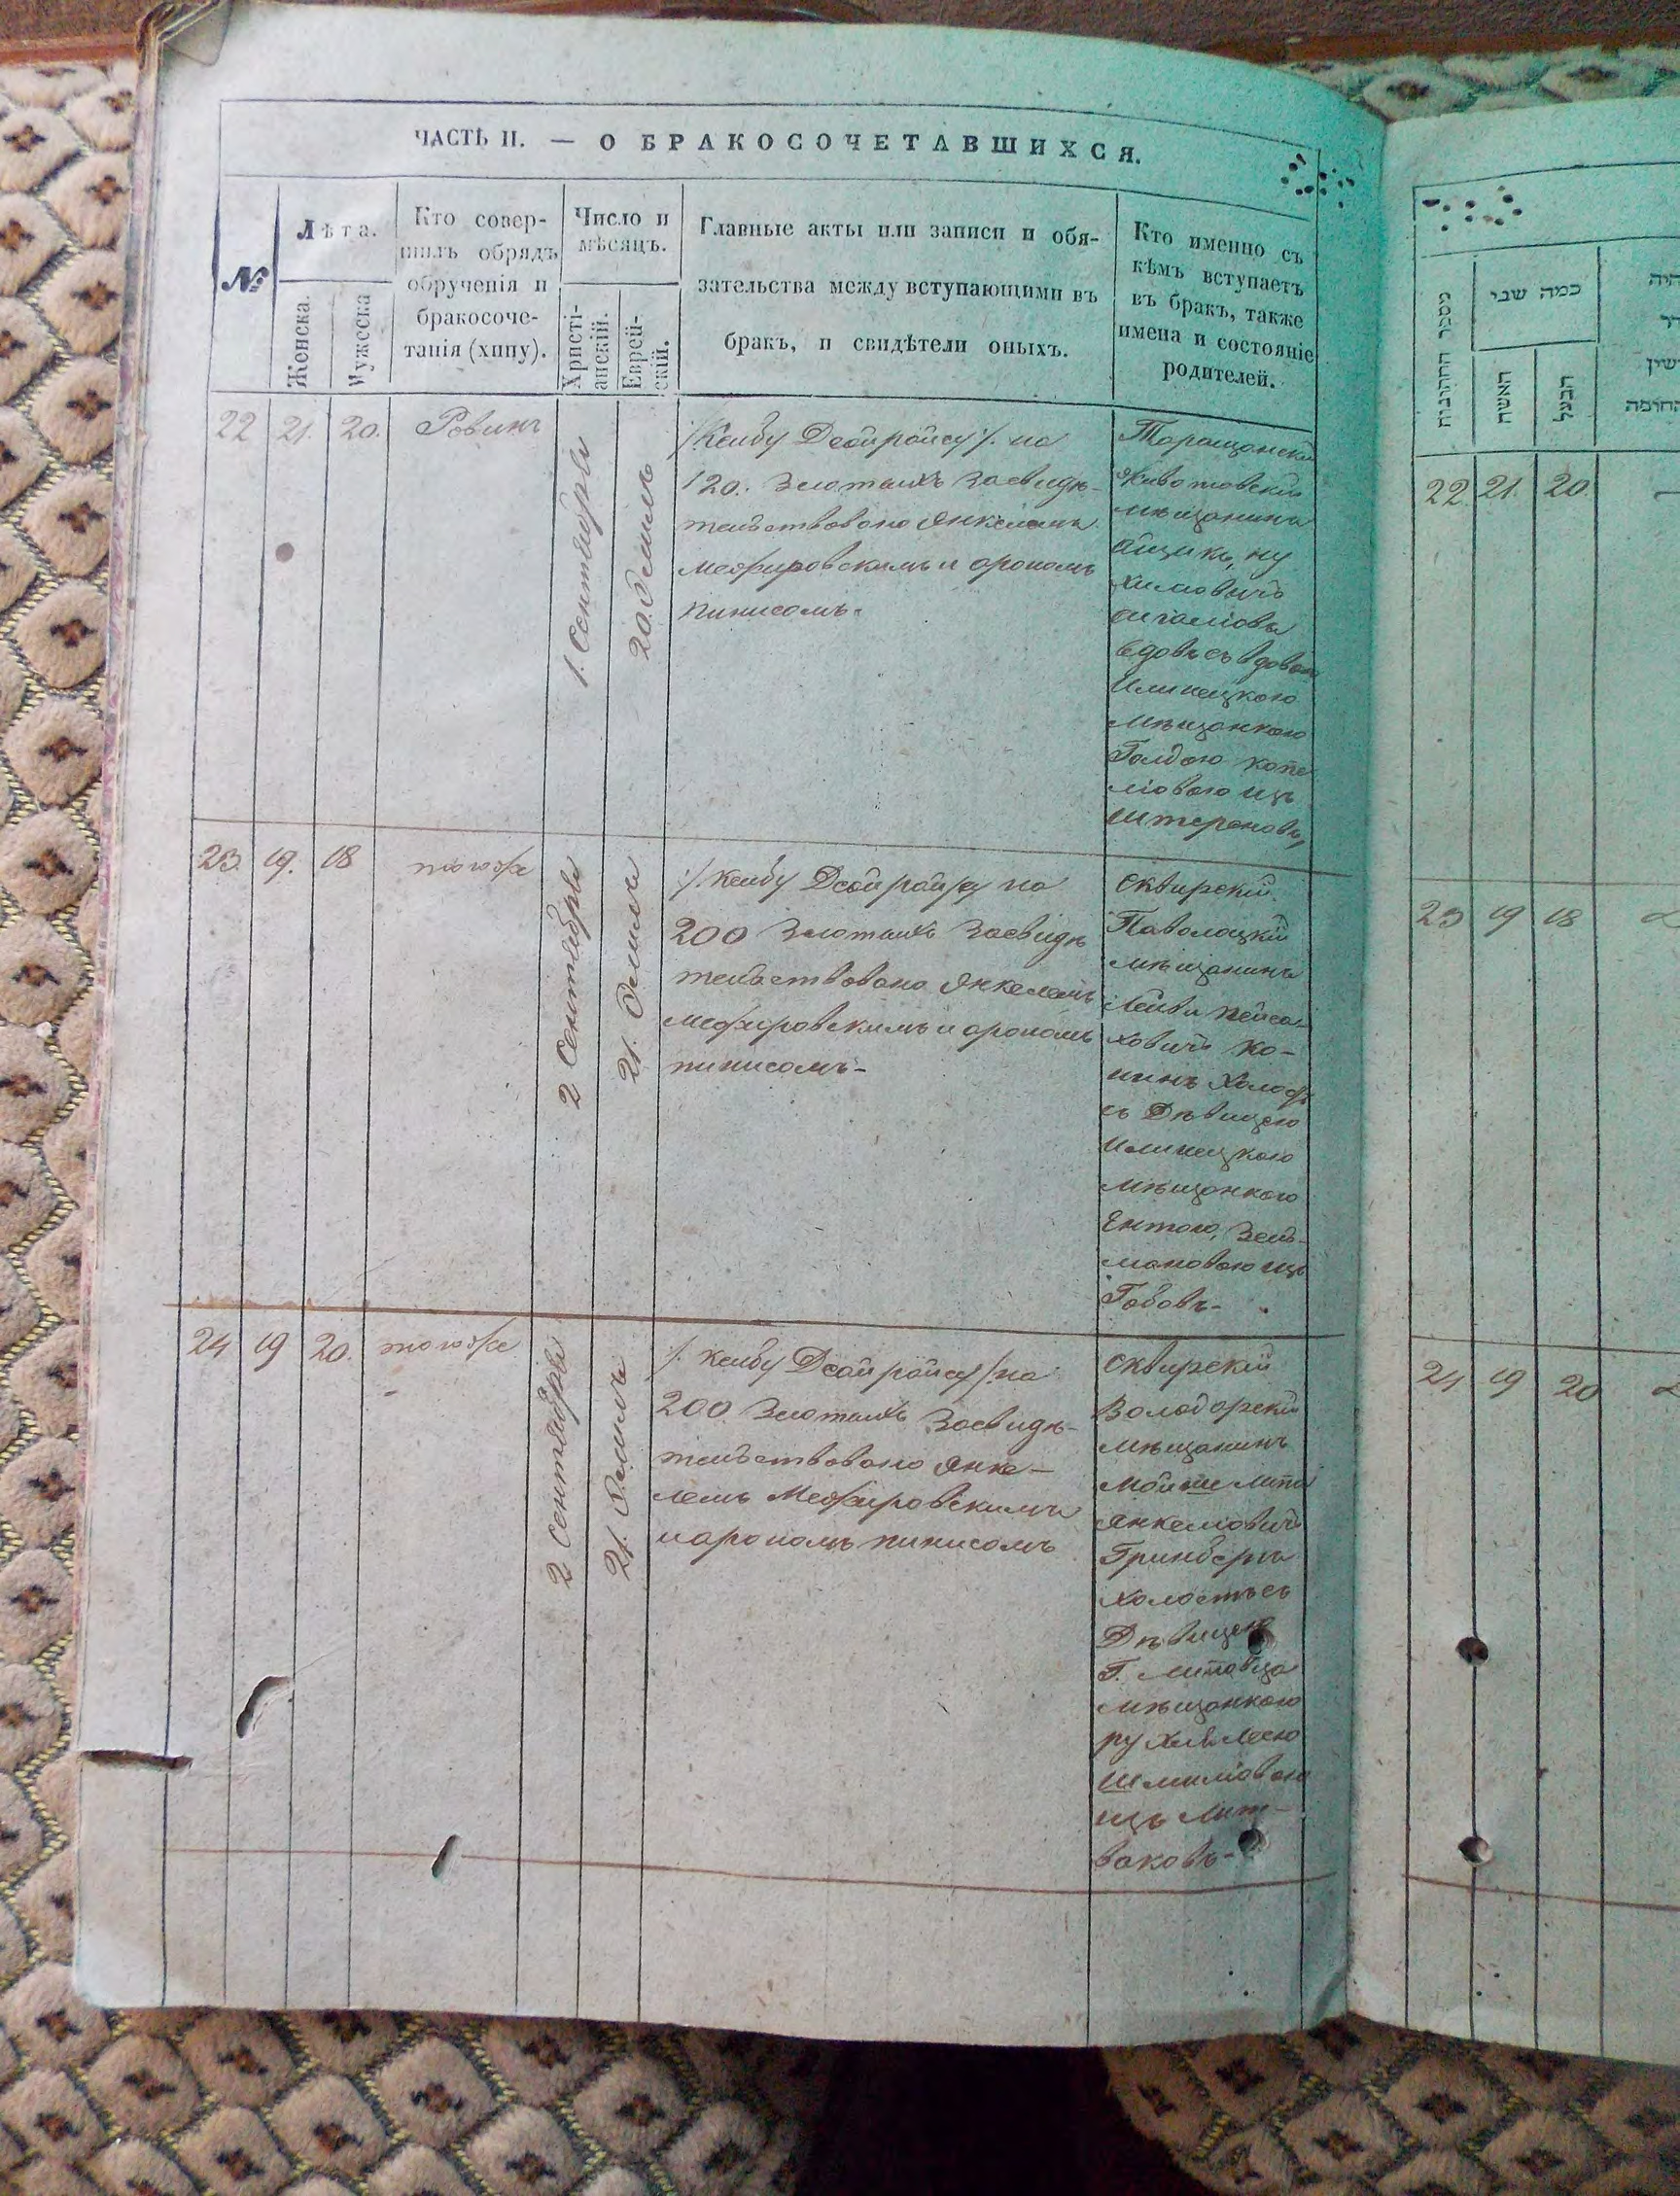 ЧАСТЬ II. — О БРАКОСОЧЕТАВШИХСЯ.
№
Лѣта.
Женска
Мужеска
Кто совер-
шилъ обрядъ
обрученія и
бракосоче-
танія (хипу).
Число и
мѣсяцъ.
Христі-
анскій.
Еврей-
скій.
Главные акты или записи и обя-
зательства между вступающими въ
бракъ, и свидѣтели оныхъ.
Кто именно съ
кѣмъ вступаетъ
въ бракъ, также
имена и состояніе
родителей.
22 21. 20. Ровинъ
1. Сентября
20. Земиль
/:Ксибу Дсайрайсу:/ на
120. Злотыхъ Засвидѣ-
тельствовано Янкелемъ
Межировскимъ и арономъ
пинисомъ-
Таращанскій
Животовскій
мѣщанинъ
Хилювичъ
вдовъ съ вдовою
Илинецкою
мѣщанкою
Голдою копе
ліовою изъ
Штереновъ,
23. 19. 18 тотоже
2 Сентября
21. Земиль
/:Ксибу Дсайрайсу на
200 Злотыхъ Засвидѣ
тельствовано Янкелемъ
Межировскимъ и арономъ
пинисомъ-
Сквирскій
Паволоцкій
мѣщанинъ
Лейви пейса-
ховичъ ко-
нинъ Холостъ
съ Дѣвицею
Илинецкою
мѣщанкою
Ентою, Зель-
мановою изъ
Габовъ-
24 19 20. тотоже
2 Сентября
21. Земиль
/:Ксибу Дсайрайсу:/ на
200 Злотыхъ Засвидѣ-
тельствовано Янке-
лемъ Межировскимъ
и арономъ пинисомъ
Сквирскій
Володарскій
мѣщанинъ
Мойше Липа
Янкеліовичъ
Гринберъ
холостъ съ
Дѣвицею
Г. Липовца
мѣщанкою
рухлею Лею
Шмиліовою
изъ Лит-
ваковъ-
מספר החתונות
כמה שני
האשה
הבעל
החופה
22 21. 20.
23 19 18
24 19 20